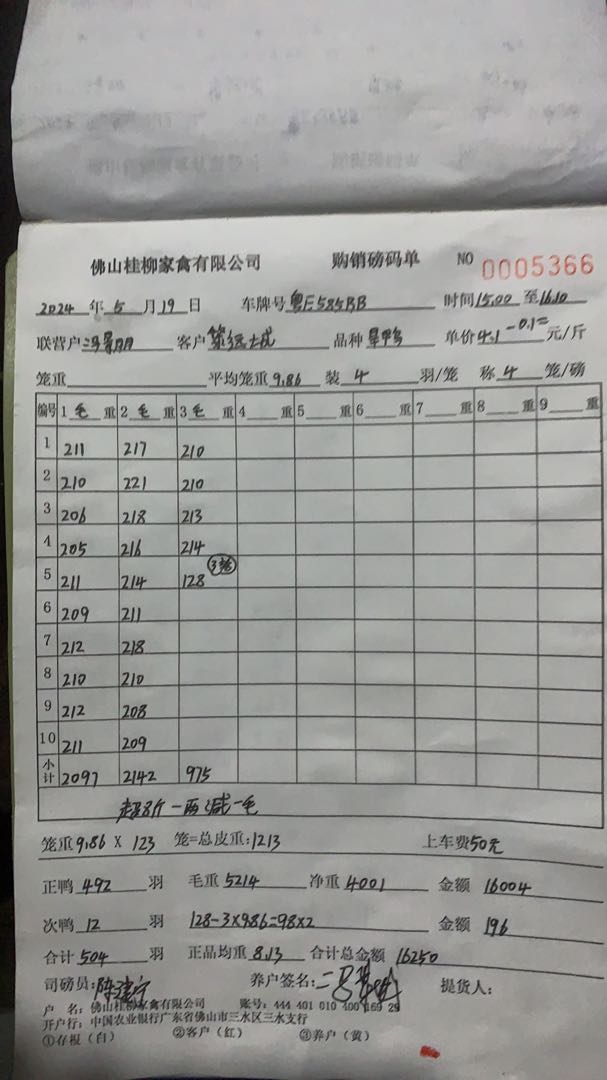 佛山桂柳家禽有限公司 购销磅码单 NO 0005366
2024 年 5 月 19 日 车牌号 粤E585BB 时间 15.00 至 16.10
联营户 客户 品种 单价 4.1-0.1= 元/斤
笼重 平均笼重 9.86 装 4 羽/笼 称 4 笼/磅
编号 1 毛 重 2 毛 重 3 毛 重 4 重 5 重 6 重 7 重 8 重 9 重
1 211 217 210
2 210 221 210
3 206 218 213
4 205 216 214
5 211 214 128 3笼
6 209 211
7 212 218
8 210 210
9 212 208
10 211 209
小计 2097 2142 975
超8斤一两减一毛
笼重 9.86 X 123 笼=总皮重:1213 上车费50元
正鸭 492 羽 毛重 5214 净重 4001 金额 16004
次鸭 12 羽 128-3×9.86=98×2 金额 196
合计 504 羽 正品均重 8.13 合计总金额 16250
司磅员: 养户签名: 提货人:
户 名: 佛山桂柳家禽有限公司 账号: 444 401 010 400 169 29
开户行: 中国农业银行广东省佛山市三水区三水支行
①存根（白） ②客户（红） ③养户（黄）